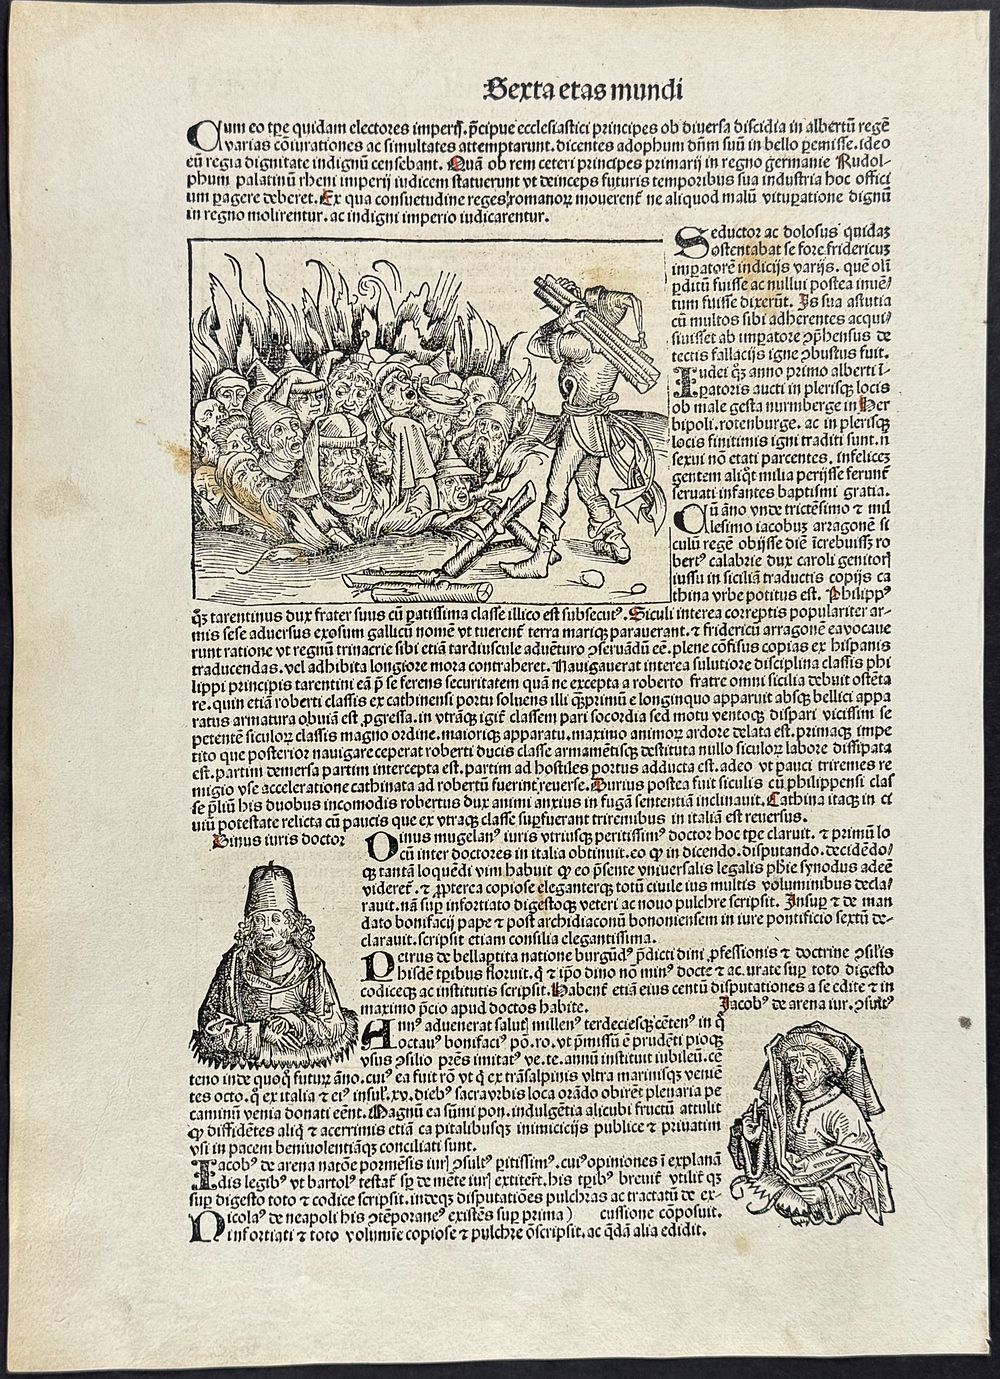 Sexta etas mundi
Cum eo tpe quidam electores imperij. p̄cipue ecclesiastici principes ob diuersa discidia in albertū regē
varias cōiurationes ac simultates attemptarunt. dicentes adophum dn̄m suū in bello peremisse. ideo
eū regia dignitate indignū censebant. Quā ob rem ceteri principes primarij in regno germanie Rudol-
phum palatinū rheni imperij iudicem statuerunt vt deinceps futuris temporibus sua industria hoc offici
um pagere deberet. Ex qua consuetudine reges romanoꝝ mouerent̄ ne aliquod malū vituperatione dignū
in regno molirentur. ac indigni imperio iudicarentur.
Seductor ac dolosus quidaz
ostentabat se fore fridericuz
impatorē indicijs varijs. quē oli
pditū fuisse ac nullui postea inuē
tum fuisse dixerūt. Is sua astutia
cū multos sibi adherentes acqui
siuisset ab impatore ꝯp̄hensus de
tectis fallacijs igne ꝯbustus fuit.
Iudei qꝫ anno primo alberti ī-
patoris aucti in plerisqꝫ locis
ob male gesta nurmberge in Her
bipoli. rotenburge. ac in plerisqꝫ
locis finitimis igni traditi sunt. n̄
sexui nō etati parcentes. infelicez
gentem aliqt milia perijsse ferunt̄
seruati infantes baptismi gratia.
Cū āno vnde trictēsimo ⁊ mil
lesimo iacobuz arragonē si
culū regē obijsse diē īcrebuissꝫ ro
bertꝰ calabrie dux caroli genitorꝭ
iussu in siciliā traductis copijs ca
thina vrbe potitus est. Philippꝰ
qꝫ tarentinus dux frater suus cū patissima classe illico est subsecutꝰ. Siculi interea correptis populariter ar-
mis sese aduersus exosum gallicū nomē vt tuerent̄ terra mariqꝫ parauerant. ⁊ fridericū arragonē ea vocaue
runt ratione vt regnū trinacrie sibi etiā tardiuscule aduēturo ꝯseruādū eē. plene cōfisus copias ex hispanis
traducendas. vel adhibita longiore mora contraheret. Nauigauerat interea solutiore disciplina classis phi
lippi principis tarentini eā p̄ se ferens securitatem quā ne excepta a roberto fratre omni sicilia debuit ostēta
re. quin etiā roberti classis ex cathinensi portu soluens illi qꝫprimū e longinquo apparuit absqꝫ bellici appa
ratus armatura obuiā est ꝓgressa. in vtrāqꝫ igit̄ classem pari socordia sed motu ventoqꝫ dispari vicissim se
petentē siculoꝝ classis magno ordine. maioriqꝫ apparatu. maximo animoꝝ ardore delata est. primaqꝫ impe
tito que posterior nauigare ceperat roberti ducis classe armamētisqꝫ destituta nullo siculoꝝ labore dissipata
est. partim demersa partim intercepta est. partim ad hostiles portus adducta est. adeo vt pauci triremes re
migio vse acceleratione cathinata ad robertū fuerint reuerse. Durius postea fuit siculis cū philippensi clas
se p̄liū his duobus incomodis robertus dux animi anxius in fugā sententiā inclinauit. Cathina itaqꝫ in ci
uiū potestate relicta cū paucis que ex vtraqꝫ classe supfuerant triremibus in italiā est reuersus.
Dinus iuris doctor
Dinus mugelanꝰ iuris vtriusqꝫ peritissimꝰ doctor hoc tpe claruit. ⁊ primū lo
cū inter doctores in italia obtinuit. eo ꝙ in dicendo. disputando. decidēdo
qꝫ tantā loquēdi vim habuit ꝙ eo p̄sente vniuersalis legalis ph̄ie synodus adeē
videret̄. ⁊ ꝓpterea copiose eleganterqꝫ totū ciuile ius multis voluminibus decla-
rauit. nā sup infortiato digestoqꝫ veteri ac nouo pulchre scripsit. Insup ⁊ de man
dato bonifacij pape ⁊ post archidiaconū bononiensem in iure pontificio sextū de-
clarauit. scripsit etiam consilia elegantissima.
Petrus de bellaptita natione burgūdꝰ p̄dicti dini ꝓfessionis ⁊ doctrine ꝯsilis
hisdē tpibus floruit. q̄ ⁊ ip̄o dino nō minꝰ docte ⁊ ac. urate sup toto digesto
codiceqꝫ ac institutis scripsit. Habent̄ etiā eius centū disputationes a se edite ⁊ in
maximo p̄cio apud doctos habite.
Jacobꝰ de arena iur. ꝯsultꝰ
Annꝰ aduenerat salutꝭ millenꝰ terdeciesqꝫ cētenꝰ in q̄
octauꝰ bonifaciꝰ pō. ro. vt p̄missū ē prudēti pioqꝫ
vsus ꝯsilio prēs imitatꝰ ve. te. annū instituit iubileū. cē
teno inde quoqꝫ futurꝰ āno. cuiꝰ ea fuit rō vt q̄ ex trāsalpinis vltra marinisqꝫ veniē
tes octo. q̄ ex italia ⁊ eiꝰ insul. xv. diebꝰ sacra vrbis loca orādo obirēt plenaria pe
caminū venia donati eēnt. Magnū ea sūmi pon. indulgētia alicubi fructū attulit
ꝙ diffidētes aliq̄ ⁊ acerrimis etiā capitalibusqꝫ inimicicijs publice ⁊ priuatim
vsi in pacem beniuolentiāqꝫ conciliati sunt.
Iacobꝰ de arena natōne pormēsis iurꝭ ꝯsultꝰ pitissimꝰ. cuiꝰ opiniones ī explanā
dis legibꝰ vt bartolꝰ testat̄ sp de mēte iurꝭ extiterūt. his tpibꝰ breuit̄ vtilit̄ qꝫ
sup digesto toto ⁊ codice scripsit. indeqꝫ disputatiōes pulchras ac tractatū de ex-
cussione cōposuit.
Nicolaꝰ de neapoli his ꝯtēporaneꝰ existēs sup prima )
infortiati ⁊ toto volumine copiose ⁊ pulchre ꝯscripsit. ac q̄dā alia edidit.